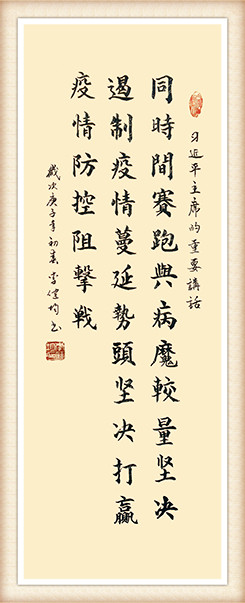 习近平主席的重要講話
同時間賽跑與病魔較量坚决
遏制疫情蔓延勢頭坚决打贏
疫情防控阻擊戦
歲次庚子年初春李健